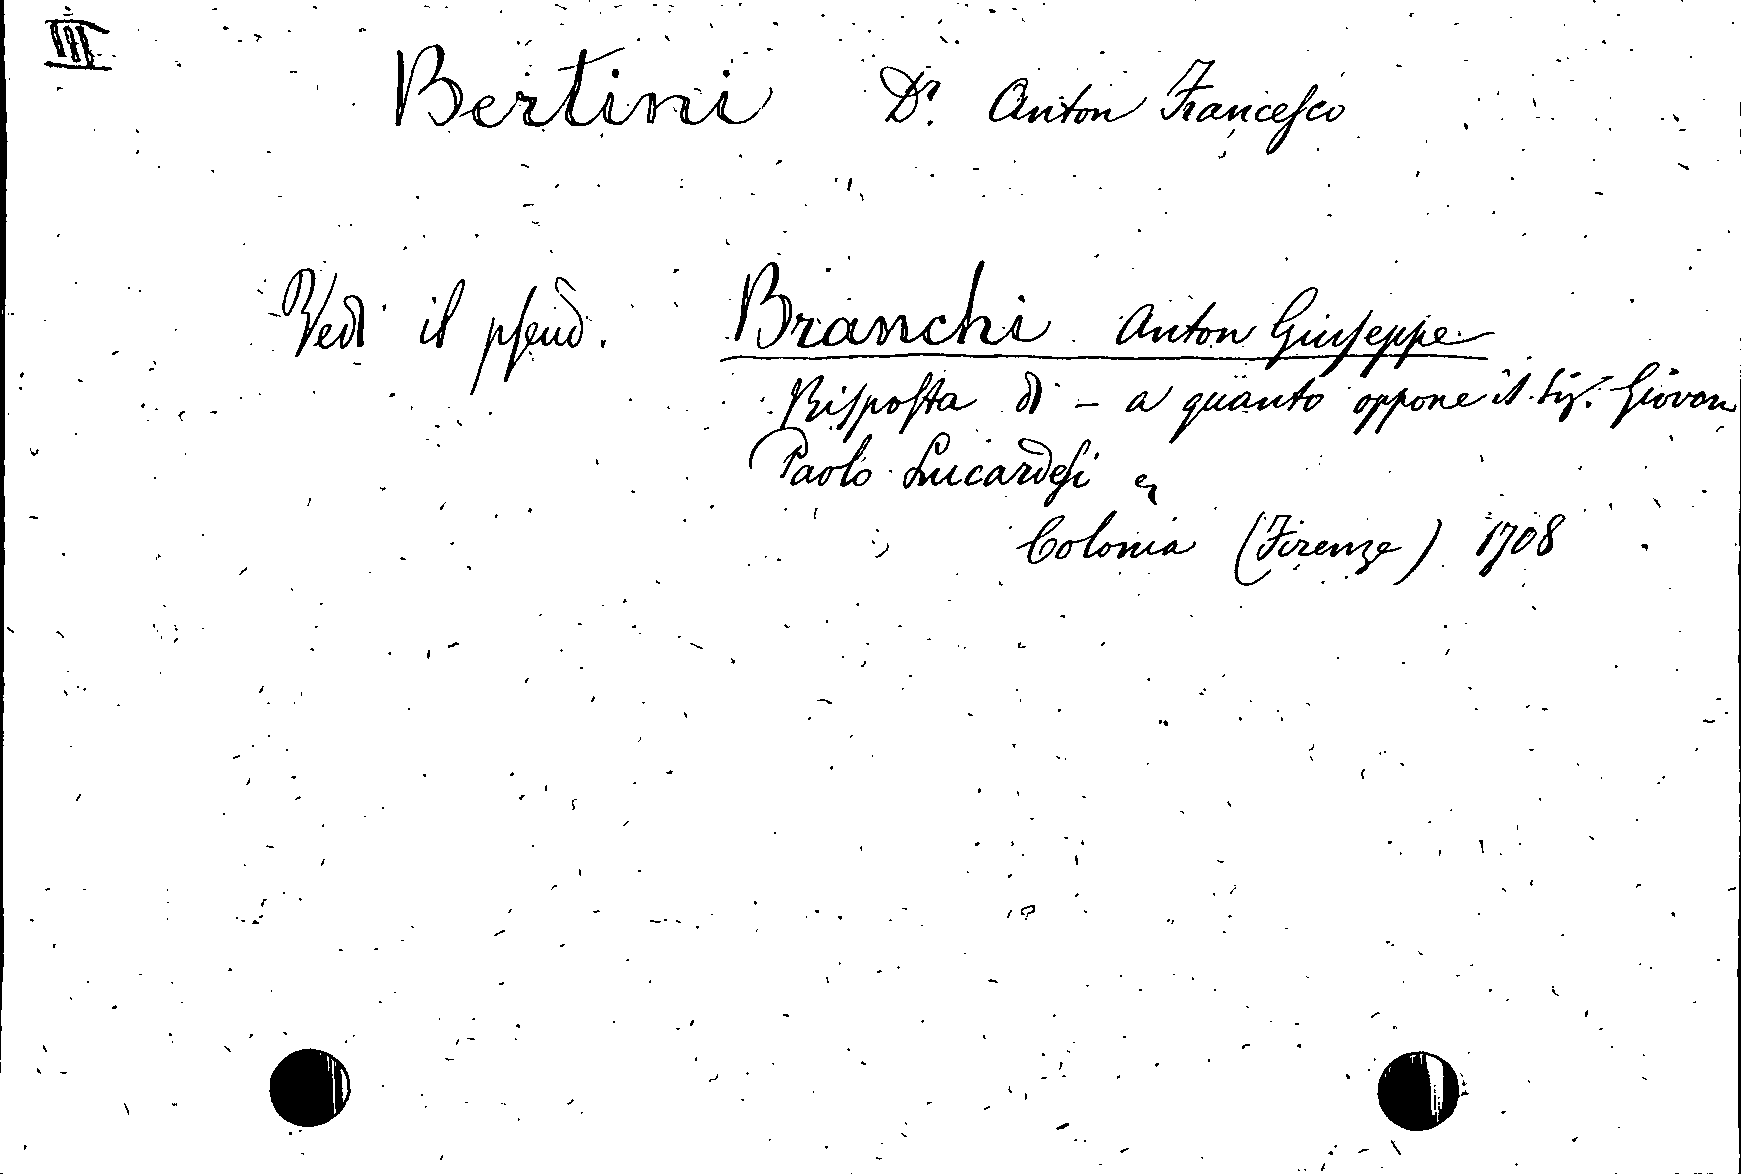 III
Bertini Dr. Anton Francesco
Vedi il pseud. Branchi Anton Giuseppe
Risposta di - a quanto oppone il Sig. Giovan
Paolo Lucardesi
Colonia (Firenze) 1708